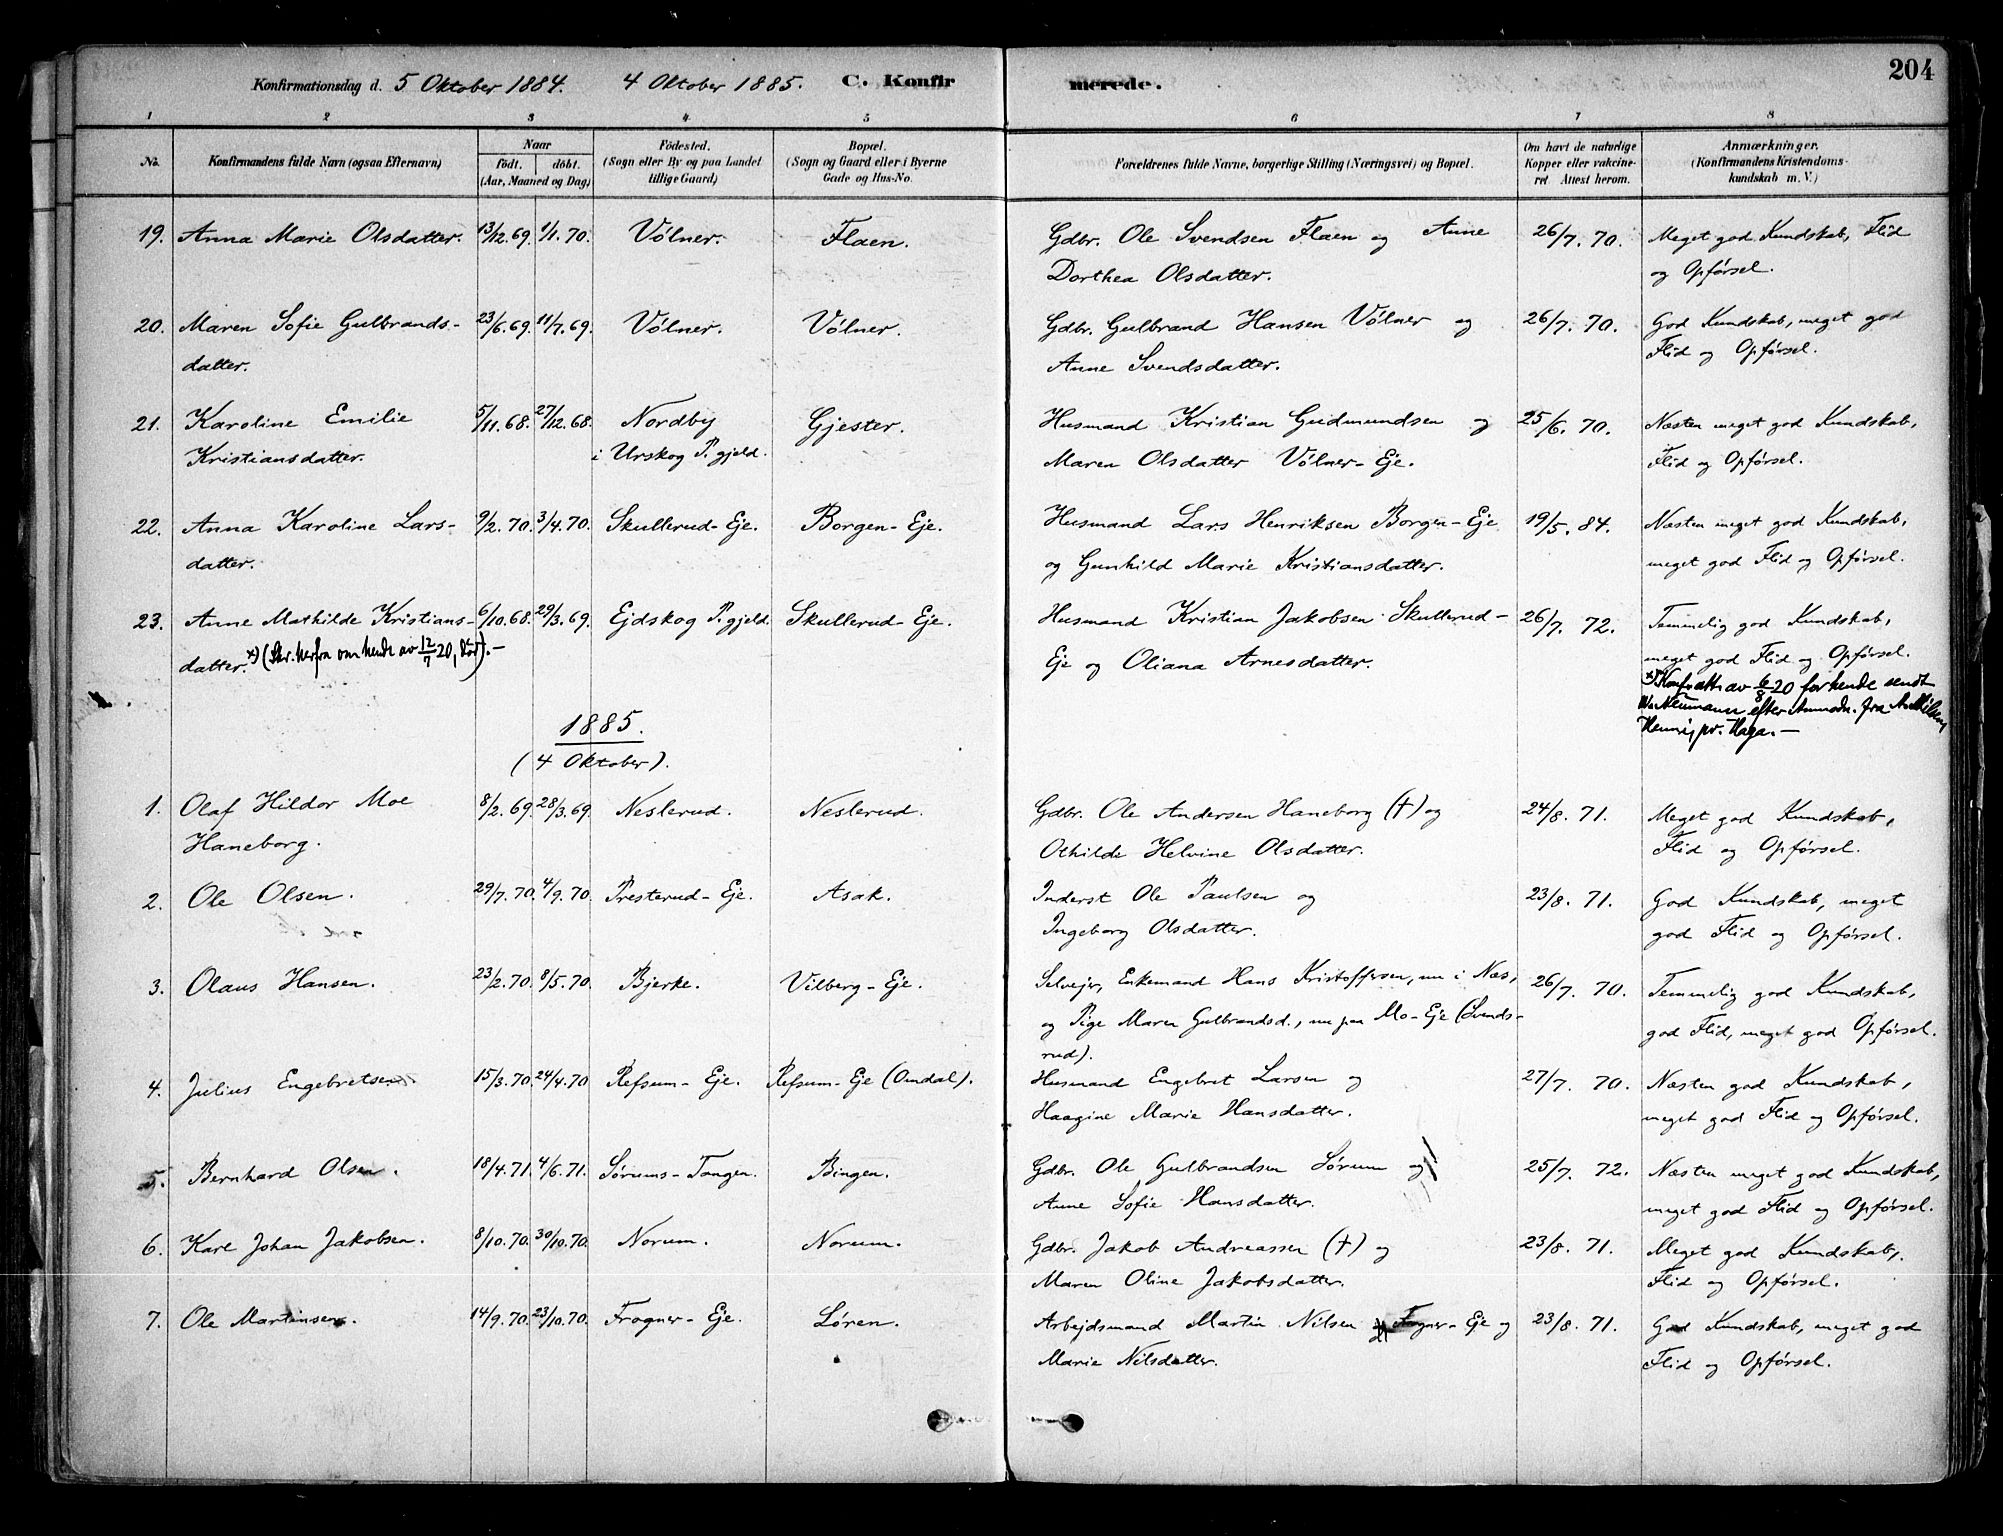 Konfirmationsdag d. 5 Oktober 1884. 4 Oktober 1885. C. Konfirmerede. 204
1 2 3 4 5 6 7 8
No. Konfirmandens fulde Navn (ogsaa Efternavn) Naar födt. döbt. (Aar, Maaned og Dag) Födested. (Sogn eller By og paa Landet tillige Gaard) Bopæl. (Sogn og Gaard eller i Byerne Gade og Hus-No. Forældrenes fulde Navne, borgerlige Stilling (Næringsvei) og Bopæl. Om havt de naturlige Kopper eller vakcineret. Attest herom. Anmærkninger. (Konfirmandens Kristendomskundskab m. V.)
19. Anna Marie Olsdatter. 13/12.69. 1/1.70. Völner. Flaen. Gdbr. Ole Svendsen Flaen og Anne 26/7. 70. Meget god Kundskab, Flid
Dorthea Olsdatter. og Opförsel.
20. Maren Sofie Gulbrands- 23/6.69. 11/7.69. Völner. Völner. Gdbr. Gulbrand Hansen Völner og 26/7. 70. God Kundskab, meget god
datter. Anne Svendsdatter. Flid og Opförsel.
21. Karoline Emilie 5/11.68. 27/12.68. Nordby Gjester. Husmand Kristian Gudmundsen og 25/6. 70. Næsten meget god Kundskab,
Kristiansdatter. i Urskog P. gjeld. Maren Olsdatter Völner-Eje. Flid og Opförsel.
22. Anna Karoline Lars- 9/2.70. 3/4.70. Skullerud-Eje. Borgen-Eje. Husmand Lars Henriksen Borgen-Eje 19/5. 84. Næsten meget god Kundskab,
datter. og Gunhild Marie Kristiansdatter. meget god Flid og Opförsel.
23. Anne Mathilde Kristians- 6/10.68. 29/3.69. Ejdskog P. gjeld. Skullerud-Eje. Husmand Kristian Jakobsen Skullerud- 26/7. 72. Temmelig god Kundskab,
datter. x) (Skr. herfra om hende av 12/7 20, ). - Eje og Oliana Arnesdatter. meget god Flid og Opförsel.
x) av 6/8 20 for hende sendt
Neumann efter Anmodn. fra
pr. Haga. -
1885.
(4 Oktober).
1. Olaf Hildor Moe 8/2.69. 28/3.69. Neslerud. Neslerud. Gdbr. Ole Andersen Haneborg (†) og 24/8. 71. Meget god Kundskab,
Haneborg. Othilde Helvine Olsdatter. Flid og Opförsel.
2. Ole Olsen. 29/7.70. 4/9.70. Presterud-Eje. Asak. Inderst Ole Paulsen og 23/8. 71. God Kundskab, meget
Ingeborg Olsdatter. god Flid og Opförsel.
3. Olaus Hansen. 23/2.70. 8/5.70. Bjerke. Vilberg-Eje. Selvejer, Enkemand Hans Kristoffersen, nu i Næs, 26/7. 70. Temmelig god Kundskab,
og Pige Maren Gulbrandsd., nu paa Mo-Eje (Svends- god Flid, meget god Opförsel.
rud).
4. Julius Engebretsen. 15/3.70. 24/4.70. Refsum-Eje. Refsum-Eje (Omdal). Husmand Engebret Larsen og 27/7. 70. Næsten god Kundskab,
Haagine Marie Hansdatter. meget god Flid og Opförsel.
5. Bernhard Olsen. 18/4.71. 4/6.71. Sörums-Tangen. Bingen. Gdbr. Ole Gulbrandsen Sörum og 25/7. 72. Næsten meget god Kundskab,
Anne Sofie Hansdatter. meget god Flid og Opförsel.
6. Karl Johan Jakobsen. 8/10.70. 30/10.70. Norum. Norum. Gdbr. Jakob Andreassen (†) og 23/8. 71. Meget god Kundskab,
Maren Oline Jakobsdatter. Flid og Opförsel.
7. Ole Martinsen. 14/9.70. 23/10.70. Frogner-Eje. Lören. Arbejdsmand Martin Nilsen Frogner-Eje og 23/8. 71. God Kundskab, meget god
Marie Nilsdatter. Flid og Opförsel.